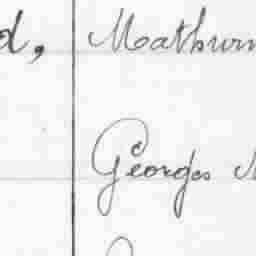 d, Mathurin
Georges